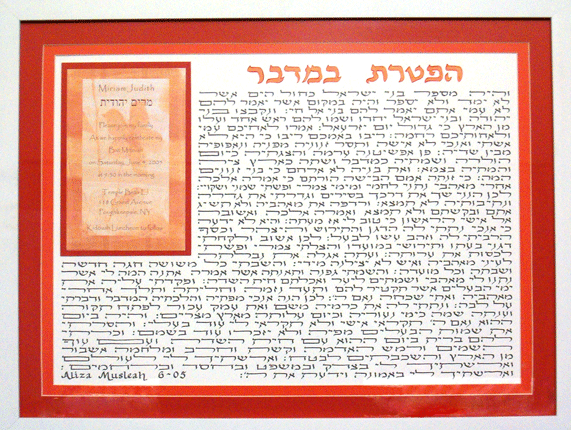 הפטרת במדבר
Miriam Judith
מרים יהודית
Bat Mitzvah
on Saturday, June 4, 2005
at 9:30 in the morning
Temple Beth El
118 Grand Avenue
Poughkeepsie, NY
Kiddush Luncheon to follow
והיה מספר בני ישראל כחול הים אשר
לא ימד ולא יספר והיה במקום אשר יאמר להם
לא עמי אתם יאמר להם בני אל חי: ונקבצו בני
יהודה ובני ישראל יחדו ושמו להם ראש אחד ועלו
מן הארץ כי גדול יום יזרעאל: אמרו לאחיכם עמי
ולאחותיכם רחמה: ריבו באמכם ריבו כי היא לא
אשתי ואנכי לא אישה ותסר זנוניה מפניה ונאפופיה
מבין שדיה: פן אפשיטנה ערמה והצגתיה כיום
הולדה ושמתיה כמדבר ושתה כארץ ציה
והמתיה בצמא: ואת בניה לא ארחם כי בני זנונים
המה: כי זנתה אמם הבישה הורתם כי אמרה אלכה
אחרי מאהבי נתני לחמי ומימי צמרי ופשתי שמני ושקויי:
לכן הנני שך את דרכך בסירים וגדרתי את גדרה
ונתיבותיה לא תמצא: ורדפה את מאהביה ולא תשיג
אתם ובקשתם ולא תמצא ואמרה אלכה ואשובה
אל אישי הראשון כי טוב לי אז מעתה: והיא לא ידעה
כי אנכי נתתי לה הדגן והתירוש והיצהר וכסף
הרביתי לה וזהב עשו לבעל: לכן אשוב ולקחתי
דגני בעתו ותירושי במועדו והצלתי צמרי ופשתי
לכסות את ערותה: ועתה אגלה את נבלתה
לעיני מאהביה ואיש לא יצילנה מידי: והשבתי כל משושה חגה חדשה
ושבתה וכל מועדה: והשמתי גפנה ותאנתה אשר אמרה אתנה המה לי אשר
נתנו לי מאהבי ושמתים ליער ואכלתם חית השדה: ופקדתי עליה את
ימי הבעלים אשר תקטיר להם ותעד נזמה וחליתה ותלך אחרי
מאהביה ואתי שכחה נאם ה: לכן הנה אנכי מפתיה והלכתיה המדבר ודברתי
על לבה: ונתתי לה את כרמיה משם ואת עמק עכור לפתח תקוה
וענתה שמה כימי נעוריה וכיום עלותה מארץ מצרים: והיה ביום
ההוא נאם ה' תקראי אישי ולא תקראי לי עוד בעלי: והסרתי
את שמות הבעלים מפיה ולא יזכרו עוד בשמם: וכרתי
להם ברית ביום ההוא עם חית השדה ועם עוף
השמים ורמש האדמה וקשת וחרב ומלחמה אשבור
מן הארץ והשכבתים לבטח: וארשתיך לי לעולם
וארשתיך לי בצדק ובמשפט ובחסד וברחמים:
וארשתיך לי באמונה וידעת את ה':
Aliza Musleah 6-05